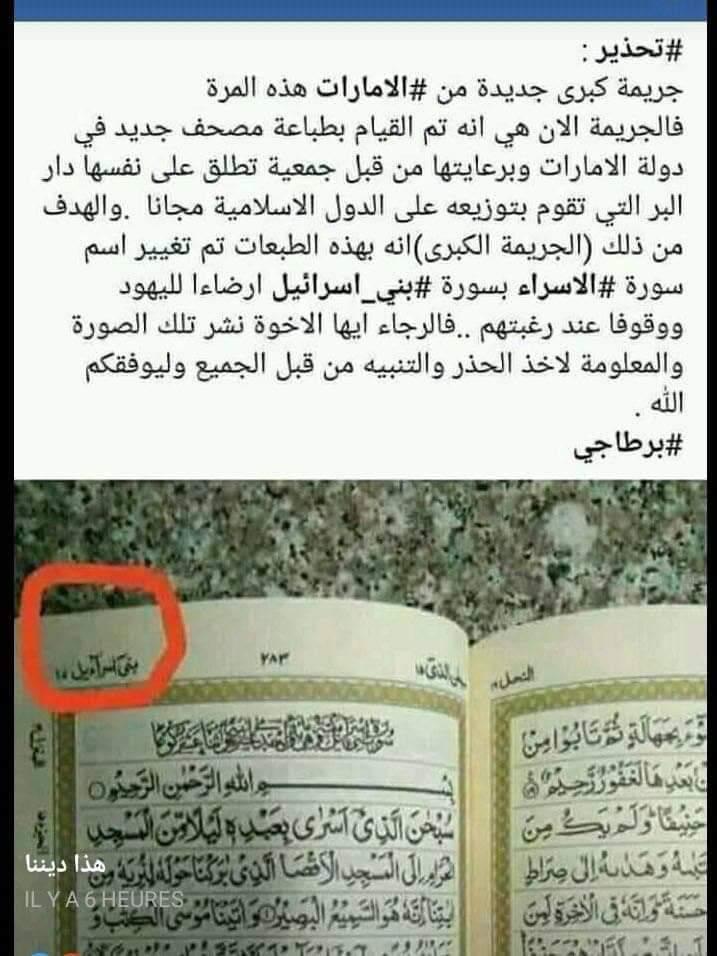 #تحذير :
جريمة كبرى جديدة من #الامارات هذه المرة
فالجريمة الان هي انه تم القيام بطباعة مصحف جديد في
دولة الامارات وبرعايتها من قبل جمعية تطلق على نفسها دار
البر التي تقوم بتوزيعه على الدول الاسلامية مجانا .والهدف
من ذلك (الجريمة الكبرى)انه بهذه الطبعات تم تغيير اسم
سورة #الاسراء بسورة #بني_اسرائيل ارضاءا لليهود
ووقوفا عند رغبتهم ..فالرجاء ايها الاخوة نشر تلك الصورة
والمعلومة لاخذ الحذر والتنبيه من قبل الجميع وليوفقكم
الله .
#برطاجي
النحل ١٦
سبحن الذی ١٥
٢٨٣
بنی اسراءیل ١٧
بِسْمِ اللهِ الرَّحْمٰنِ الرَّحِيْمِ
سُبْحٰنَ الَّذِیْۤ اَسْرٰی بِعَبْدِهٖ لَیْلًا مِّنَ الْمَسْجِدِ
الْحَرَامِ اِلَی الْمَسْجِدِ الْاَقْصَا الَّذِیْ بٰرَكْنَا حَوْلَهٗ لِنُرِیَهٗ مِنْ
اٰیٰتِنَا اِنَّهٗ هُوَ السَّمِیْعُ الْبَصِیْرُ وَاٰتَیْنَا مُوْسَی الْكِتٰبَ وَ
بِجَهَالَةٍ ثُمَّ تَابُوْا مِنْۢ
بَعْدِهَا لَغَفُوْرٌ رَّحِیْمٌ
حَنِیْفًا وَلَمْ یَكُ مِنَ
وَهَدٰىهُ اِلٰی صِرَاطٍ
حَسَنَةً وَاِنَّهٗ فِی الْاٰخِرَةِ لَمِنَ
هذا ديننا
IL Y A 6 HEURES